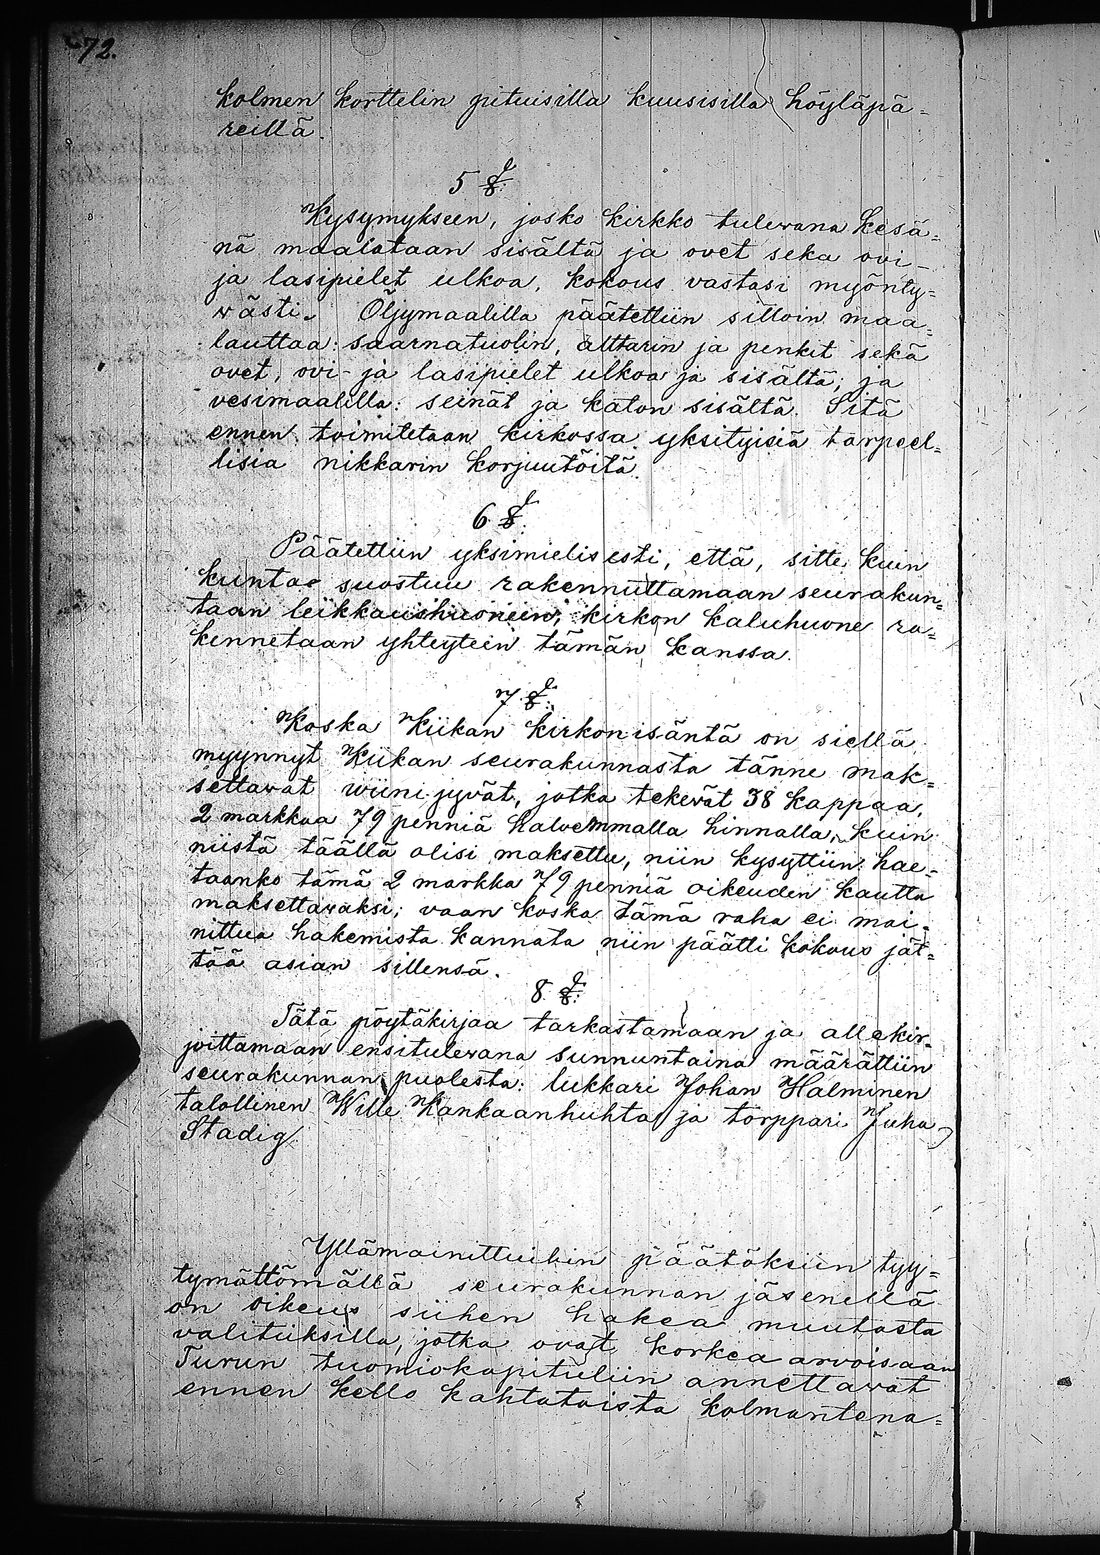 72.
kolmen korttelin pituisilla kuusisilla höyläpä-
reillä.
5 §.
Kysymykseen, josko kirkko tulevana kesä-
nä maalataan sisältä ja ovet seka ovi-
ja lasipielet ulkoa, kokous vastasi myönty-
västi. Öljymaalilla päätettiin silloin maa-
lauttaa: saarnatuolin, alttarin ja penkit sekä
ovet, ovi- ja lasipielet ulkoa ja sisältä; ja
vesimaalilla: seinät ja katon sisältä. Sitä
ennen toimitetaan kirkossa yksityisiä tarpeel-
lisia nikkarin korjuutöitä.
6 §.
Päätettiin yksimielisesti, että, sitte kuin
kunta suostuu rakennuttamaan seurakun-
taan leikkaushuoneen, kirkon kaluhuone ra-
kennetaan yhteyteen tämän kanssa.
7 §.
Koska Kiikan kirkonisäntä on siellä
myynnyt Kiikan seurakunnasta tänne mak-
settavat wiinijyvät, jotka tekevät 38 kappaa,
2 markkaa 79 penniä halvemmalla hinnalla, kuin
niistä täällä olisi maksettu, niin kysyttiin: hae-
taanko tämä 2 markka 79 penniä oikeuden kautta
maksettavaksi; vaan koska tämä raha ei mai-
nittua hakemista kannata niin päätti kokous jät-
tää asian sillensä.
8 §.
Tätä pöytäkirjaa tarkastamaan ja allekir-
joittamaan ensitulevana sunnuntaina määrättiin
seurakunnan puolesta: lukkari Johan Halminen
talollinen Wille Kankaanhuhta ja torppari Juha
Stadig.
Yllämainittuihin päätöksiin tyy-
tymättömällä seurakunnan jäsenellä
on oikeus siihen hakea muutosta
valituksilla, jotka ovat korkea arvoisaan
Turun tuomiokapituliin annettavat
ennen kello kahtatoista kolmantena-